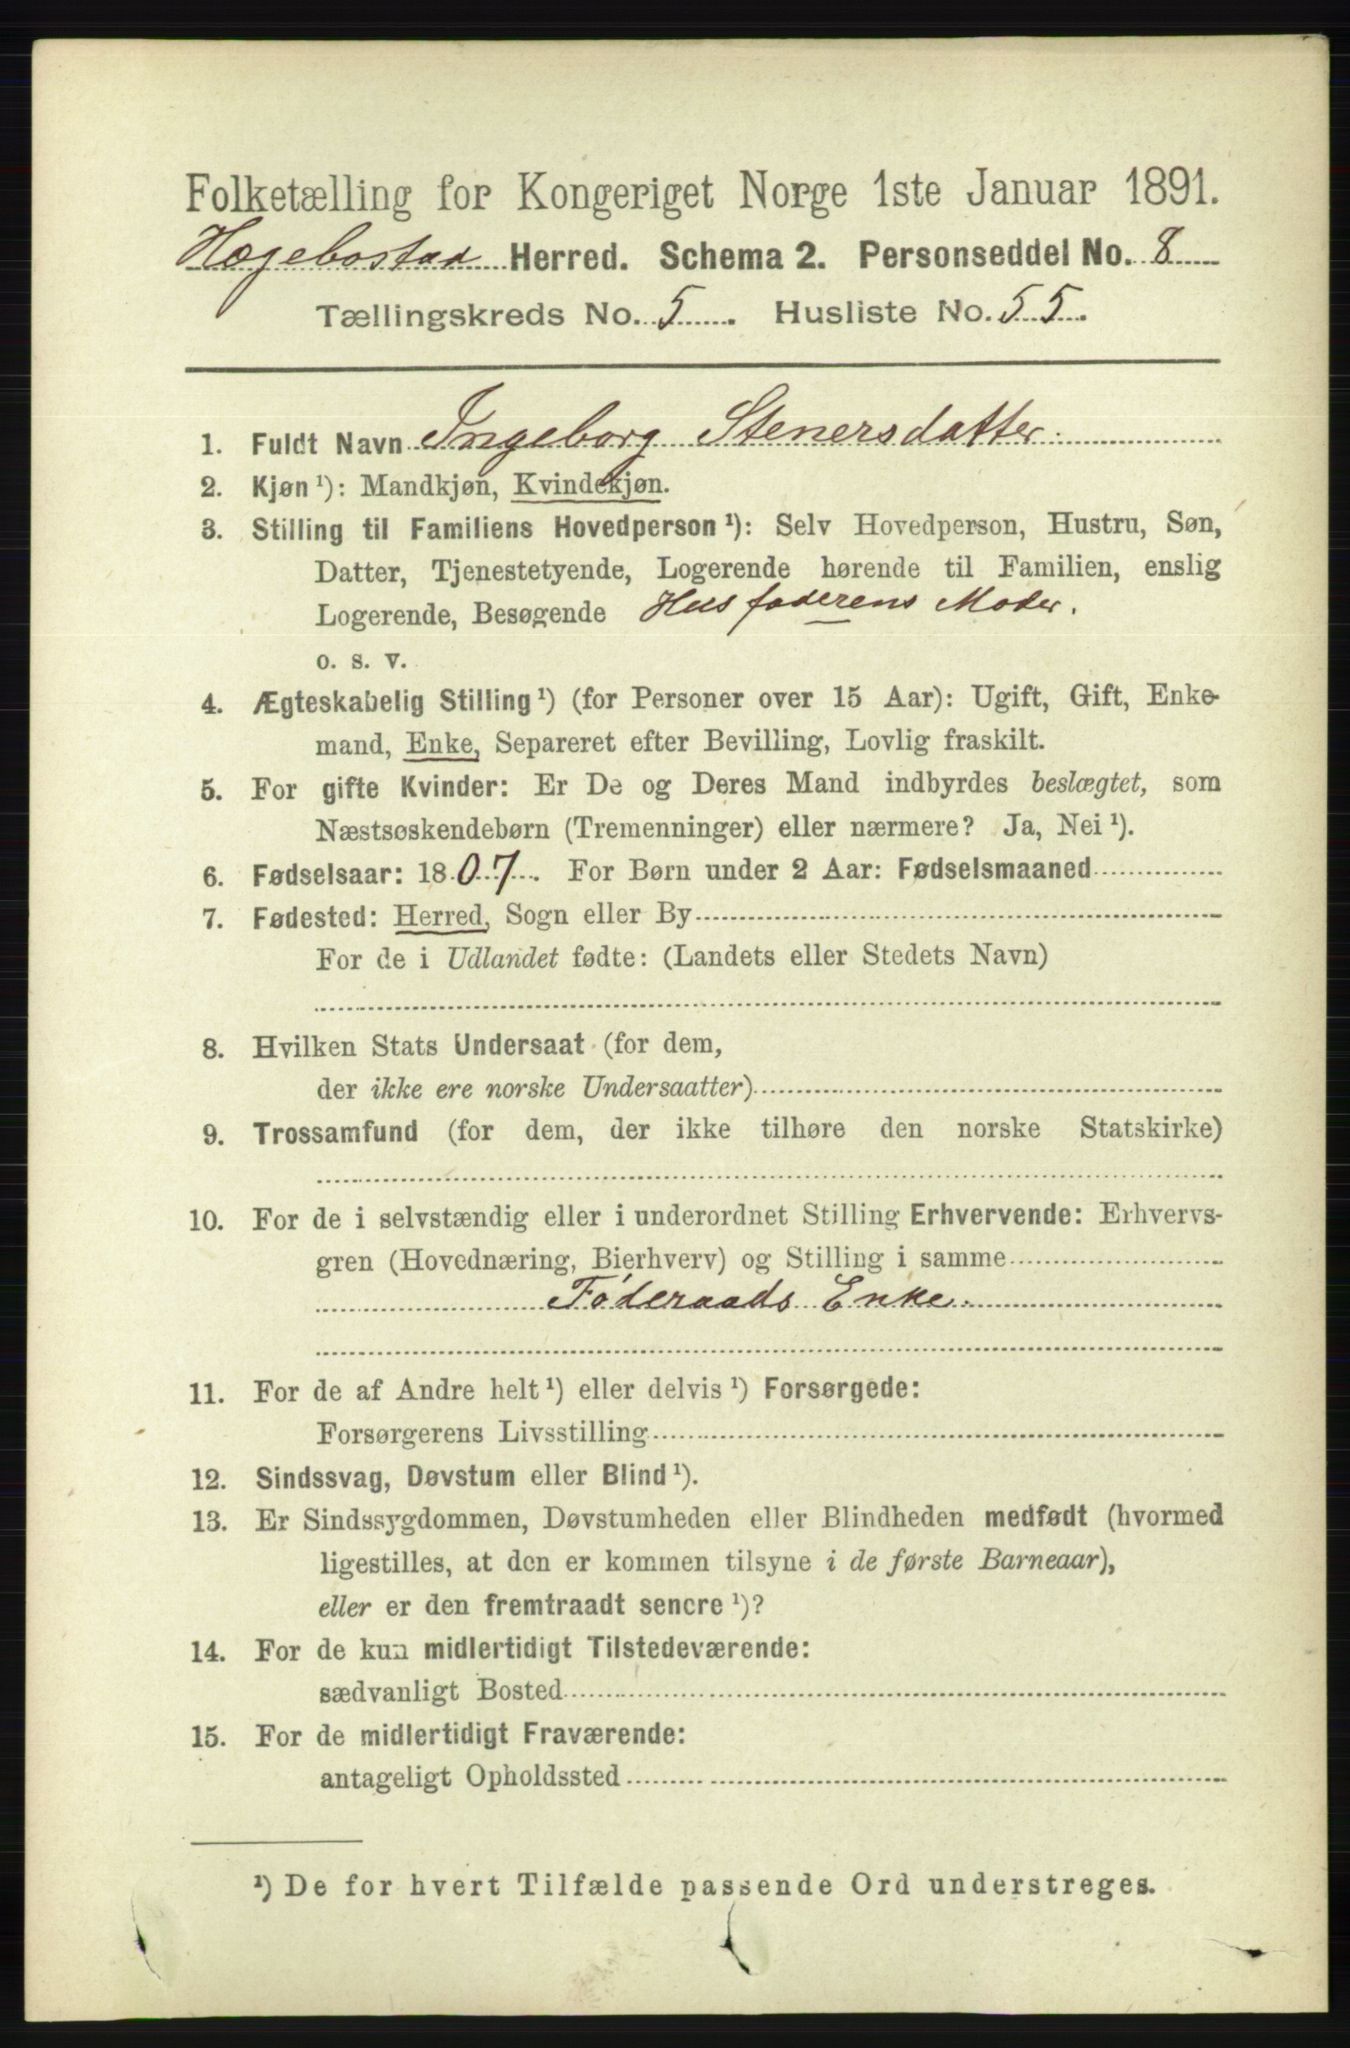 Folketælling for Kongeriget Norge 1ste Januar 1891.
Hægebostad Herred. Schema 2. Personseddel No. 8
Tællingskreds No. 5. Husliste No. 55.
1. Fuldt Navn Ingeborg Stenersdatter.
2. Kjøn ¹): Mandkjøn, Kvindekjøn.
3. Stilling til Familiens Hovedperson ¹): Selv Hovedperson, Hustru, Søn,
Datter, Tjenestetyende, Logerende hørende til Familien, enslig
Logerende, Besøgende Husfaderens Moder.
o. s. v.
4. Ægteskabelig Stilling ¹) (for Personer over 15 Aar): Ugift, Gift, Enke-
mand, Enke, Separeret efter Bevilling, Lovlig fraskilt.
5. For gifte Kvinder: Er De og Deres Mand indbyrdes beslægtet, som
Næstsøskendebørn (Tremenninger) eller nærmere? Ja, Nei ¹).
6. Fødselsaar: 1807. For Børn under 2 Aar: Fødselsmaaned
7. Fødested: Herred, Sogn eller By
For de i Udlandet fødte: (Landets eller Stedets Navn)
8. Hvilken Stats Undersaat (for dem,
der ikke ere norske Undersaatter)
9. Trossamfund (for dem, der ikke tilhøre den norske Statskirke)
10. For de i selvstændig eller i underordnet Stilling Erhvervende: Erhvervs-
gren (Hovednæring, Bierhverv) og Stilling i samme
Föderaads Enke.
11. For de af Andre helt ¹) eller delvis ¹) Forsørgede:
Forsørgerens Livsstilling
12. Sindssvag, Døvstum eller Blind ¹).
13. Er Sindssygdommen, Døvstumheden eller Blindheden medfødt (hvormed
ligestilles, at den er kommen tilsyne i de første Barneaar),
eller er den fremtraadt senere ¹)?
14. For de kun midlertidigt Tilstedeværende:
sædvanligt Bosted
15. For de midlertidigt Fraværende:
antageligt Opholdssted
¹) De for hvert Tilfælde passende Ord understreges.